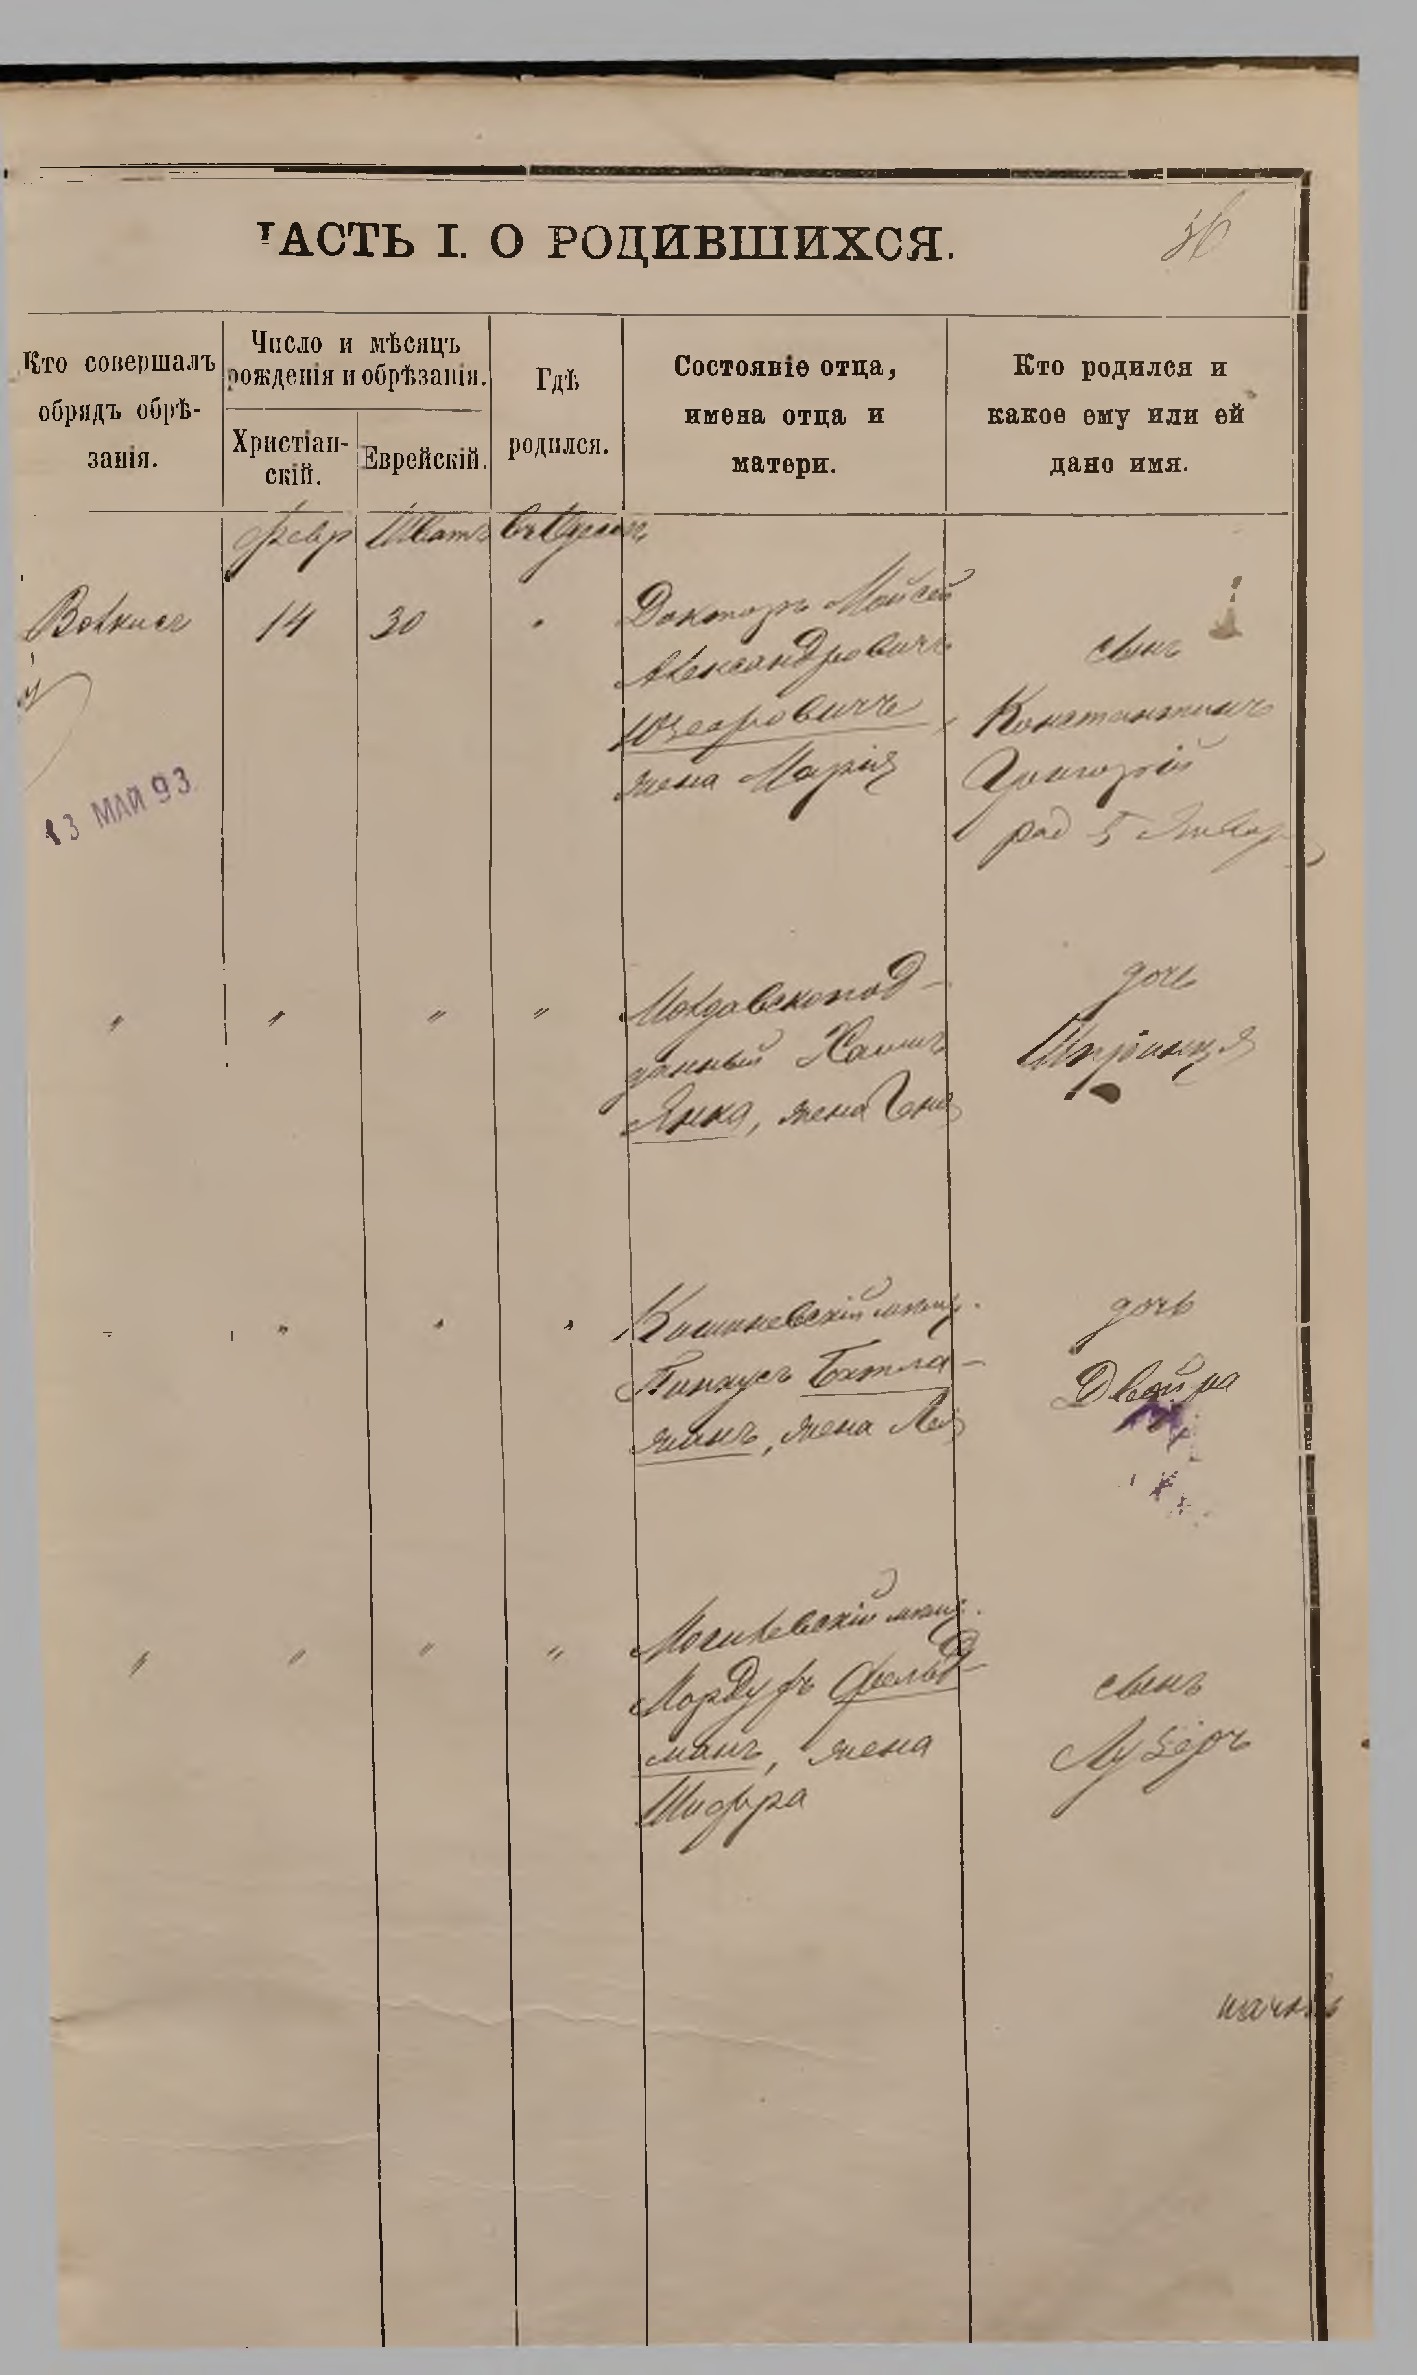 ЧАСТЬ I. О РОДИВШИХСЯ.
36
Кто совершалъ
обрядъ обрѣ-
занія.
Число и мѣсяцъ
рожденія и обрѣзанія.
Христіан-
скій.
Еврейскій.
Гдѣ
родился.
Состояніе отца,
имена отца и
матери.
Кто родился и
какое ему или ей
дано имя.
Февр Шватъ въ Одессѣ
14 30 "
Докторъ Мойсей
Александровичъ
Юзефовичъ,
жена Марія
сынъ
Константинъ
Григорій
род 5 Январ
13 МАЙ 93
" " " "
Молдавскопод-
данный Хаимъ
Янко, жена Геня
дочь
Шпринця
" " "
Кишиневскій мѣщ.
Пинхусъ
жена Лея
дочь
Двойра
" " " "
Могилевскій мѣщ.
Мордухъ Фельд-
манъ, жена
Шифра
сынъ
Лузеръ